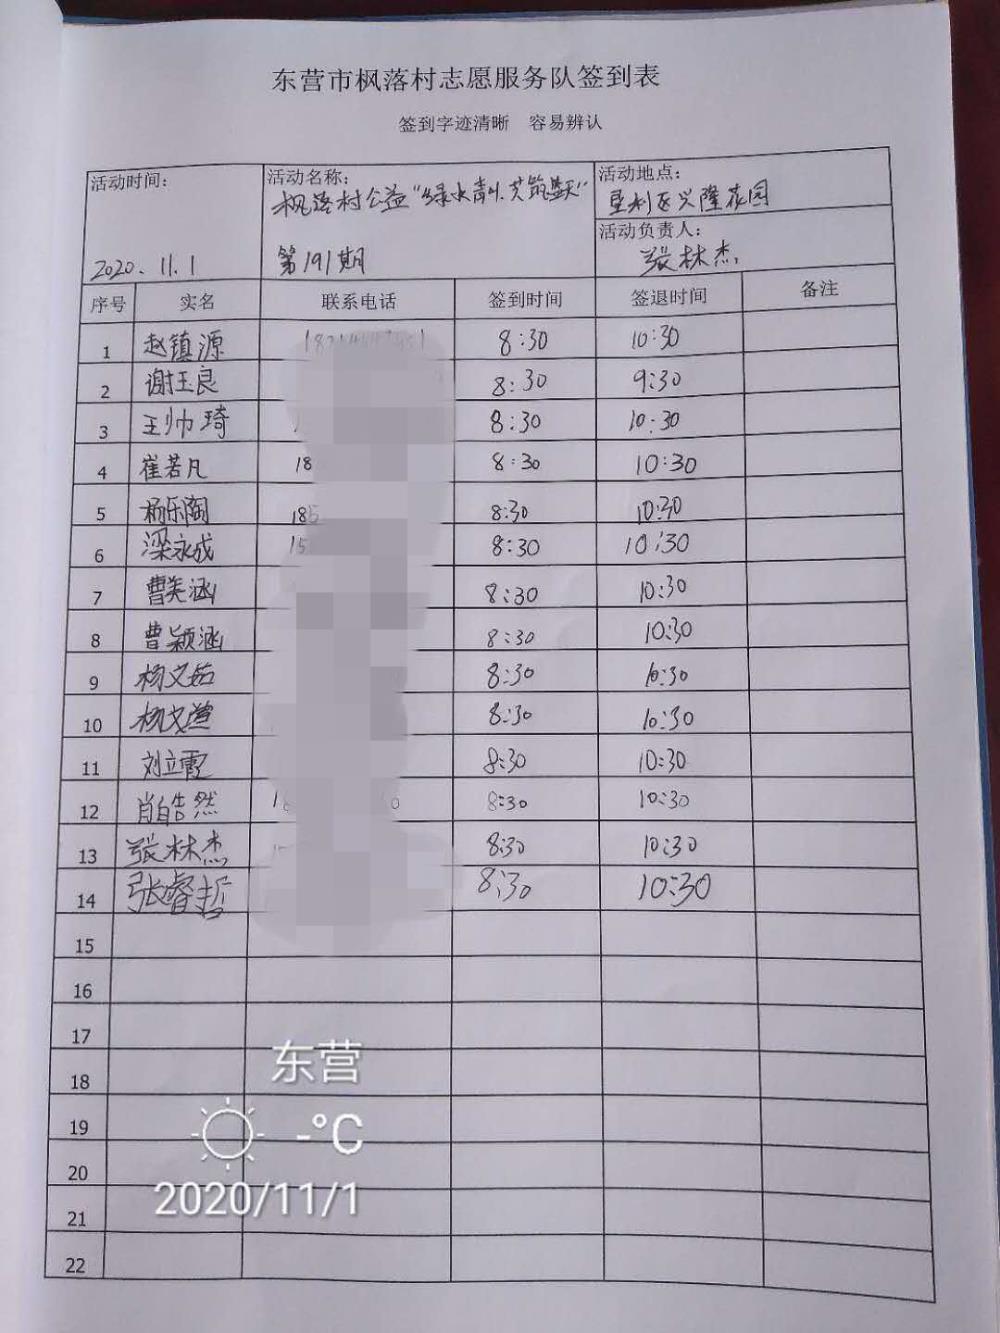 东营市枫落村志愿服务队签到表
签到字迹清晰 容易辨认
活动时间: 2020.11.1
活动名称: 枫落村公益“绿水青山.共筑蓝天”
第191期
活动地点: 垦利区兴隆花园
活动负责人: 张林杰
序号 实名 联系电话 签到时间 签退时间 备注
1 赵镇源 8:30 10:30
2 谢玉良 8:30 9:30
3 王帅琦 8:30 10:30
4 崔若凡 18 8:30 10:30
5 杨乐陶 185 8:30 10:30
6 梁永成 15 8:30 10:30
7 曹美涵 8:30 10:30
8 曹颖涵 8:30 10:30
9 杨文茹 8:30 10:30
10 杨文萱 8:30 10:30
11 刘立霞 8:30 10:30
12 肖皓然 8:30 10:30
13 张林杰 8:30 10:30
14 张睿哲 8:30 10:30
15
16
17
18
19
20
21
22
东营
-°C
2020/11/1